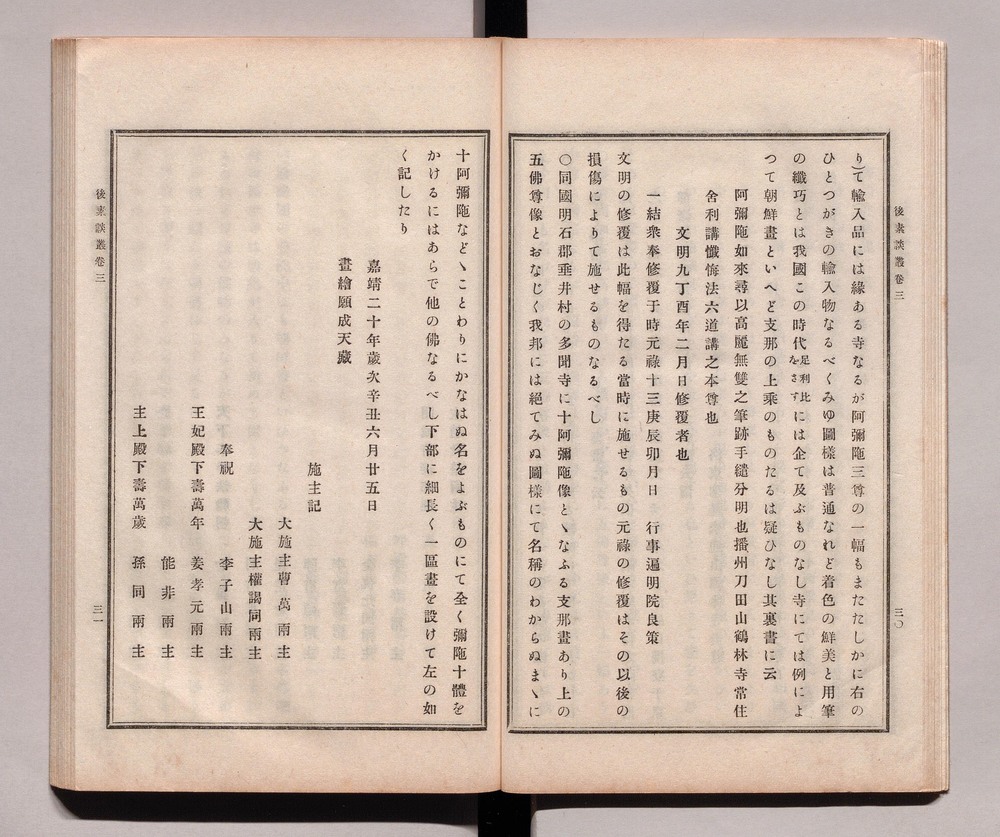 後素談叢卷三
三〇
り)て輸入品には緣ある寺なるが阿彌陁三尊の一幅もまたたしかに右の
ひとつがきの輸入物なるべくみゆ圖樣は普通なれど着色の鮮美と用筆
の纖巧とは我國この時代足利比をさすには企て及ぶものなし寺にては例によ
つて朝鮮畫といへど支那の上乘のものたるは疑ひなし其裏書に云
阿彌陁如來尋以高麗無雙之筆跡手繾分明也播州刀田山鶴林寺常住
舍利講懺悔法六道講之本尊也
文明九丁酉年二月日修覆者也
一結衆奉修覆于時元祿十三庚辰卯月日　行事遍明院良策
文明の修覆は此幅を得たる當時に施せるもの元祿の修覆はその以後の
損傷によりて施せるものなるべし
〇同國明石郡垂井村の多聞寺に十阿彌陁像とヽなふる支那畫あり上の
五佛尊像とおなじく我邦には絕てみぬ圖樣にて名稱のわからぬまヽに
十阿彌陁などヽことわりにかなはぬ名をよぶものにて全く彌陁十體を
かけるにはあらで他の佛なるべし下部に細長く一區畫を設けて左の如
く記したり
嘉靖二十年歲次辛丑六月廿五日
畫繪願成天藏
施主記
大施主曹萬兩主
大施主權謁同兩主
奉祝　李子山兩主
王妃殿下壽萬年　姜孝元兩主
能非兩主
主上殿下壽萬歲　孫同兩主
後素談叢卷三
三一